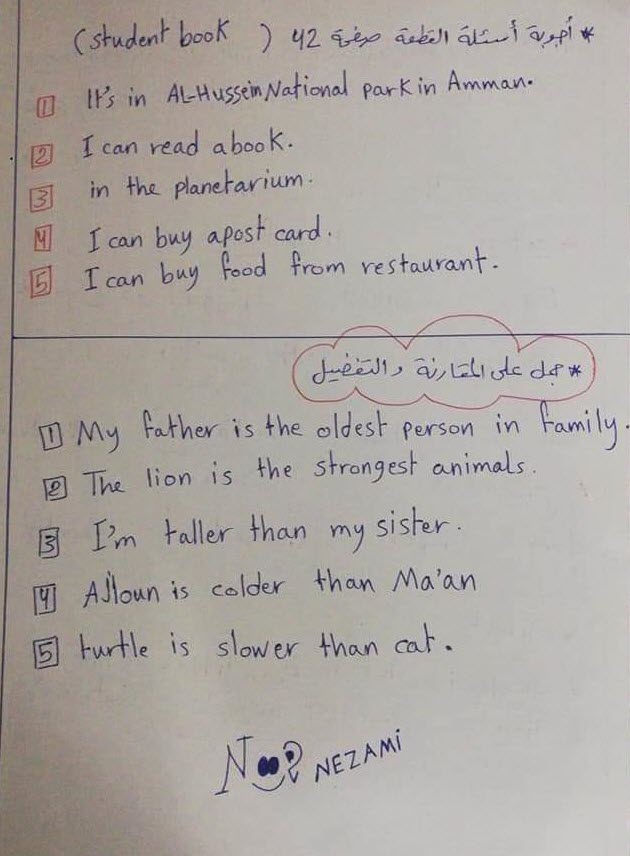 * أجوبة أسئلة القطعة صفحة 42 (student book)
1 It's in AL-Hussein National park in Amman.
2 I can read a book.
3 in the planetarium.
4 I can buy apost card.
5 I can buy food from restaurant.
* جمل على المقارنة والتفضيل
1 My father is the oldest person in family.
2 The lion is the strongest animals.
3 I'm taller than my sister.
4 Ajloun is colder than Ma'an
5 turtle is slower than cat.
NEZAMI